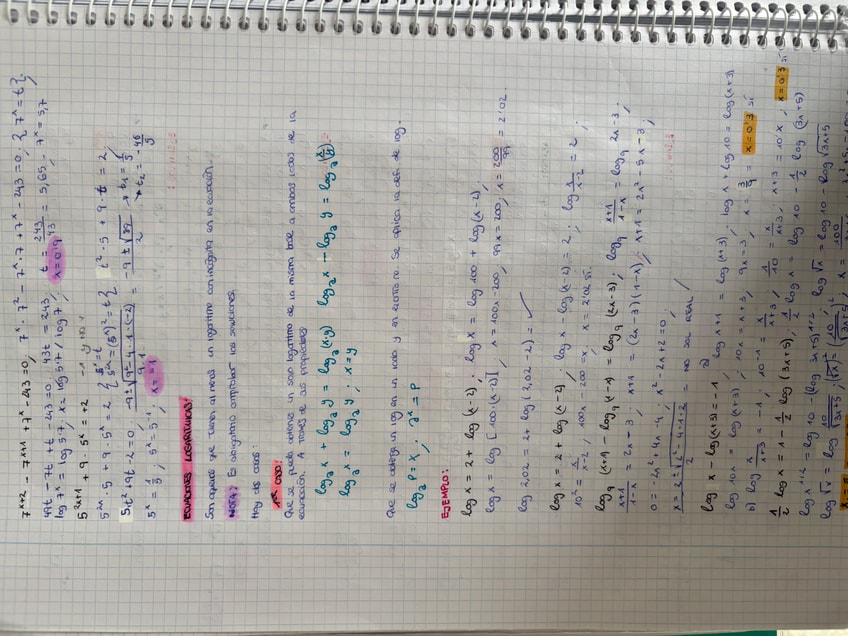 7^(x+2) - 7^(x+1) + 7^x - 243 = 0; 7^x · 7^2 - 7^x · 7 + 7^x - 243 = 0; {7^x = t};
49t - 7t + t - 243 = 0; 43t = 243; t = 243/43 = 5,65; 7^x = 5,7
log 7^x = log 5,7; x = log 5,7 / log 7; x = 0'9
5^(2x+1) + 9 · 5^x = +2
5^(2x) · 5 + 9 · 5^x = 2; {5^x = t, 5^(2x) = (5^x)^2 = t^2} t^2 · 5 + 9 · t = 2;
5t^2 + 9t - 2 = 0;
5^x = 1/5; 5^x = 5^-1; x = -1
ECUACIONES LOGARITMICAS:
Son aquellas que tienen al menos un logaritmo con incógnita en la ecuación.
NOTA: Es obligatorio comprobar las soluciones.
Hay dos casos:
1er CASO:
Que se pueda obtener un solo logaritmo de la misma base a ambos lados de la
ecuación. A través de las propiedades
log_a x + log_a y = log_a (x·y) log_a x - log_a y = log_a (x/y)
log_a x = log_a y; x = y
Que se obtenga un log en un lado y un escalar en otro. Se aplica la def. de log.
log_a P = x; a^x = P
EJEMPLO:
log x = 2 + log (x-2); log x = log 100 + log (x-2);
log x = log [100·(x-2)]; x = 100x - 200; 99x = 200; x = 200/99 = 2'02
log 2,02 = 2 + log (2,02 - 2) = ✓
log x = 2 + log (x-2); log x - log (x-2) = 2; log x/(x-2) = 2;
10^2 = x/(x-2); 100x - 200 = x; x = 2'02 sí.
log_9 (x+1) - log_9 (1-x) = log_9 (2x-3); log_9 (x+1)/(1-x) = log_9 2x-3;
(x+1)/(1-x) = 2x-3; x+1 = (2x-3)(1-x); x+1 = 2x^2 - 5x - 3;
0 = -2x^2 + 4x - 4; x^2 - 2x + 2 = 0;
x = (2 ± √(2^2 - 4·1·2))/2 = NO SOL REAL
log x - log (x+3) = -1 a) log x + 1 = log (x+3); log x + log 10 = log (x+3)
log 10x = log (x+3); 10x = x+3; 9x = 3; x = 3/9; x = 0'3 sí
b) log x/(x+3) = -1; 10^-1 = x/(x+3); 1/10 = x/(x+3); x+3 = 10'x; x = 0'3 sí
1/2 log x = 1 - 1/2 log (3x+5); 1/2 log x = log 10 - 1/2 log (3x+5)
log x^(1/2) = log 10 - (log 3x+5)^(1/2); log √x = log 10 - log √(3x+5)